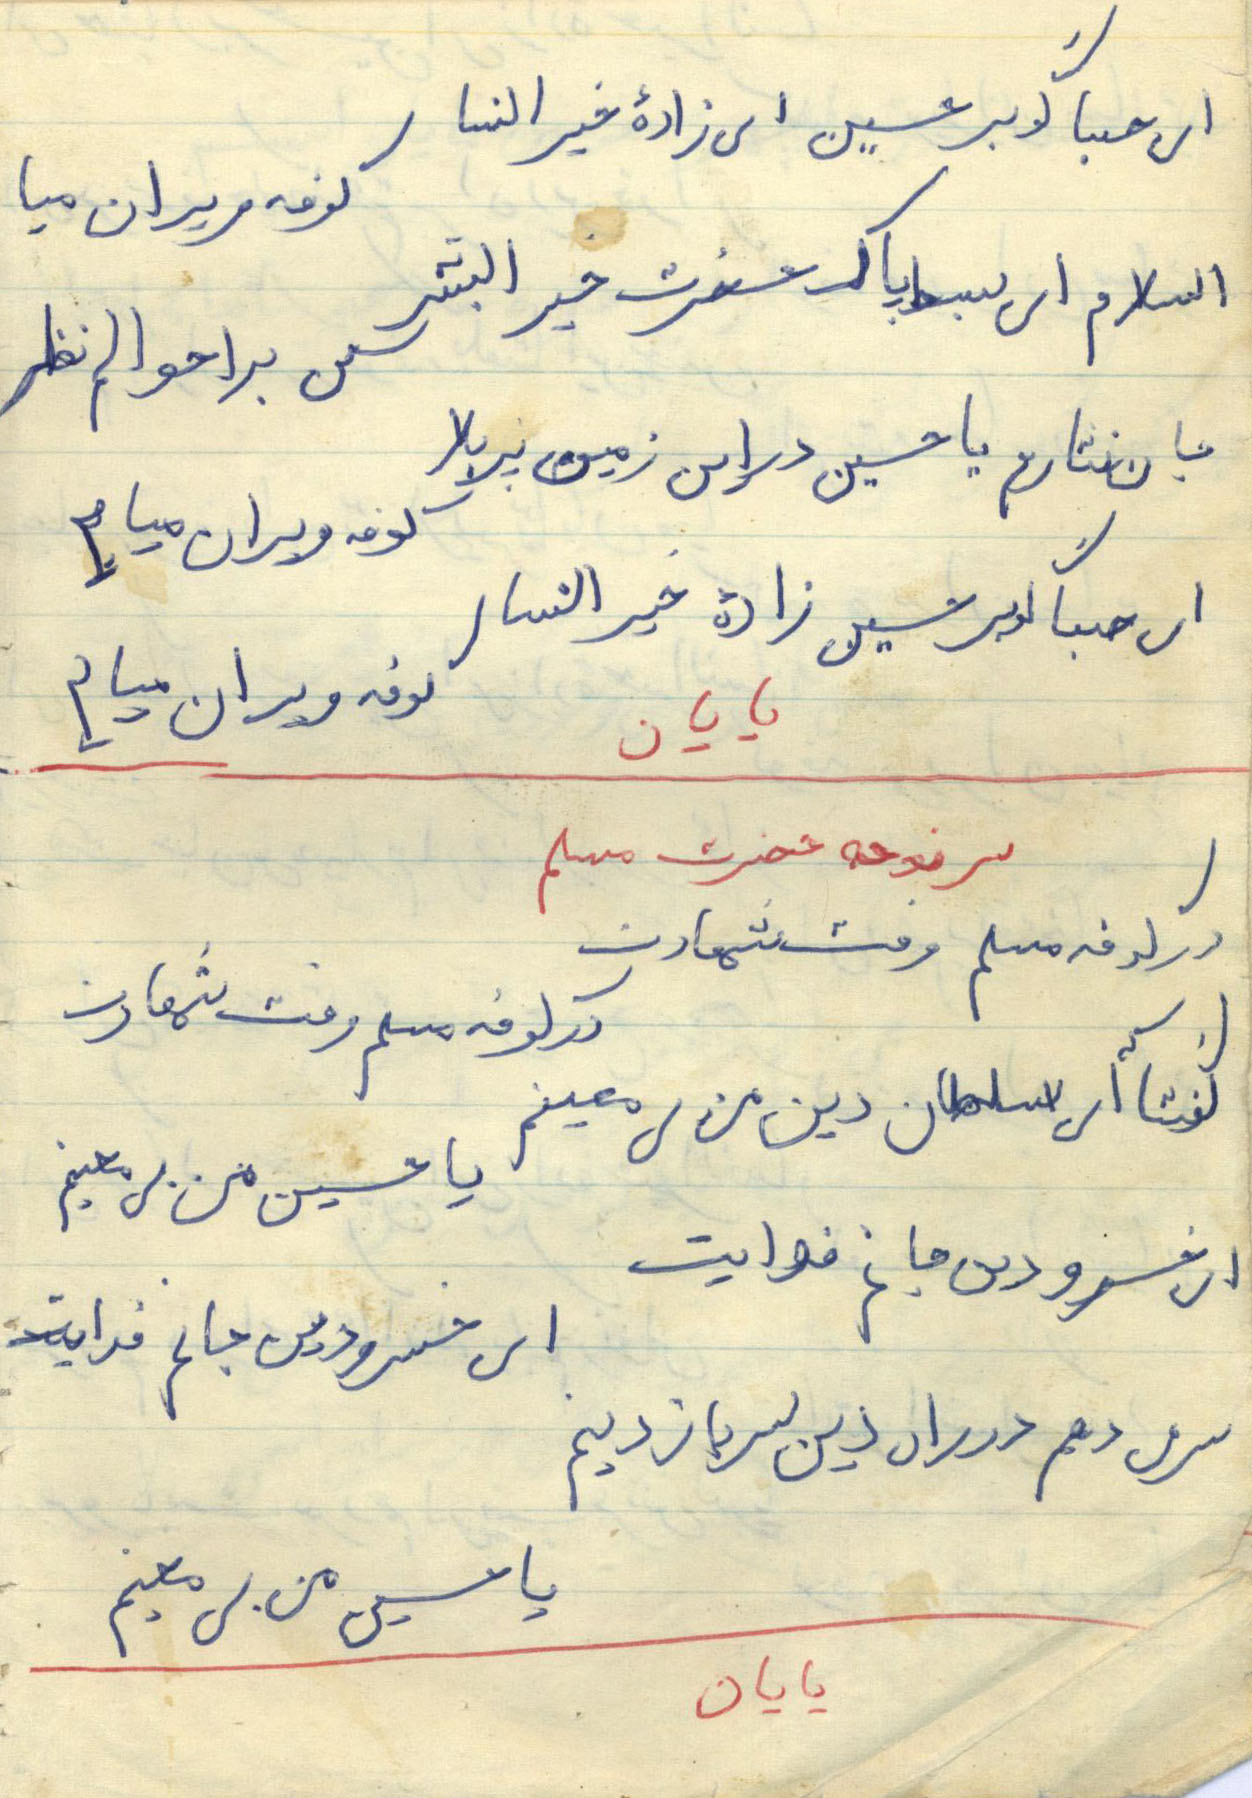 ای صبا گو بر حسین ای زادهٔ خیر النسا
کوفه ویران میا
السلام ای سبط پاک حضرت خیر البشر
کن بر احوالم نظر
جان نثارم یا حسین در این زمین پر بلا
کوفه ویران میا
ای صبا گو بر حسین زادهٔ خیر النسا
کوفه ویران میا
پایان
سر نوحه حضرت مسلم
در کوفه مسلم وقت شهادت
در کوفه مسلم وقت شهادت
گفتا ای سلطان دین من بی معینم
یا حسین من بی معینم
ای خسرو دین جانم فدایت
ای خسرو دین جانم فدایت
سر می دهم در راه دین سرباز دینم
یا حسین من بی معینم
پایان